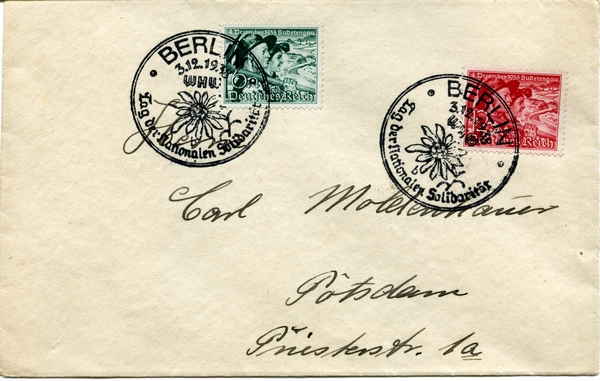 BERLIN
3.12.19
WHW
Tag der Nationalen Solidarität
b
4. Dezember 1938 Sudetengau
6
Deutsches Reich
BERLIN
3.12.19
Tag der Nationalen Solidarität
b
4. Dezember 1938 Sudetengau
Reich
Carl Moldenhauer
Potsdam
Priesterstr. 1a